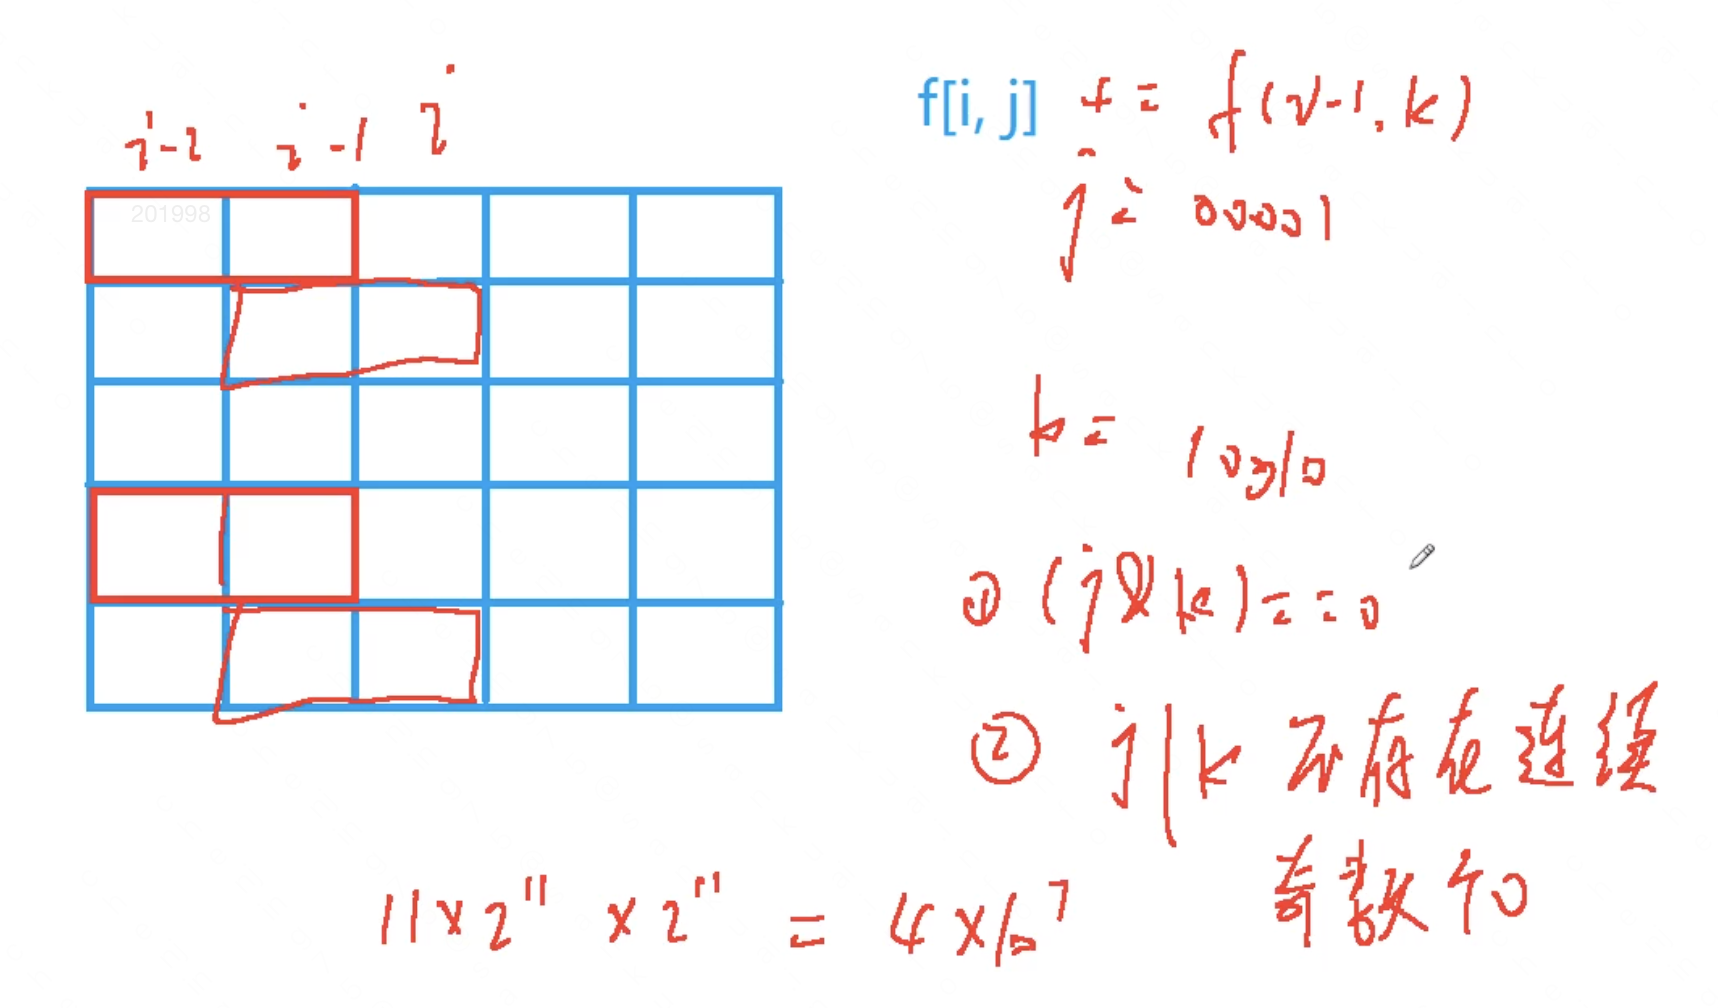 i-2 i-1 i
201998
f[i, j] += f(i-1, k)
j = 00001
k = 10010
① (j&k)==0
② j|k 不存在连续
奇数个0
11×2^11 × 2^11 = 4×10^7